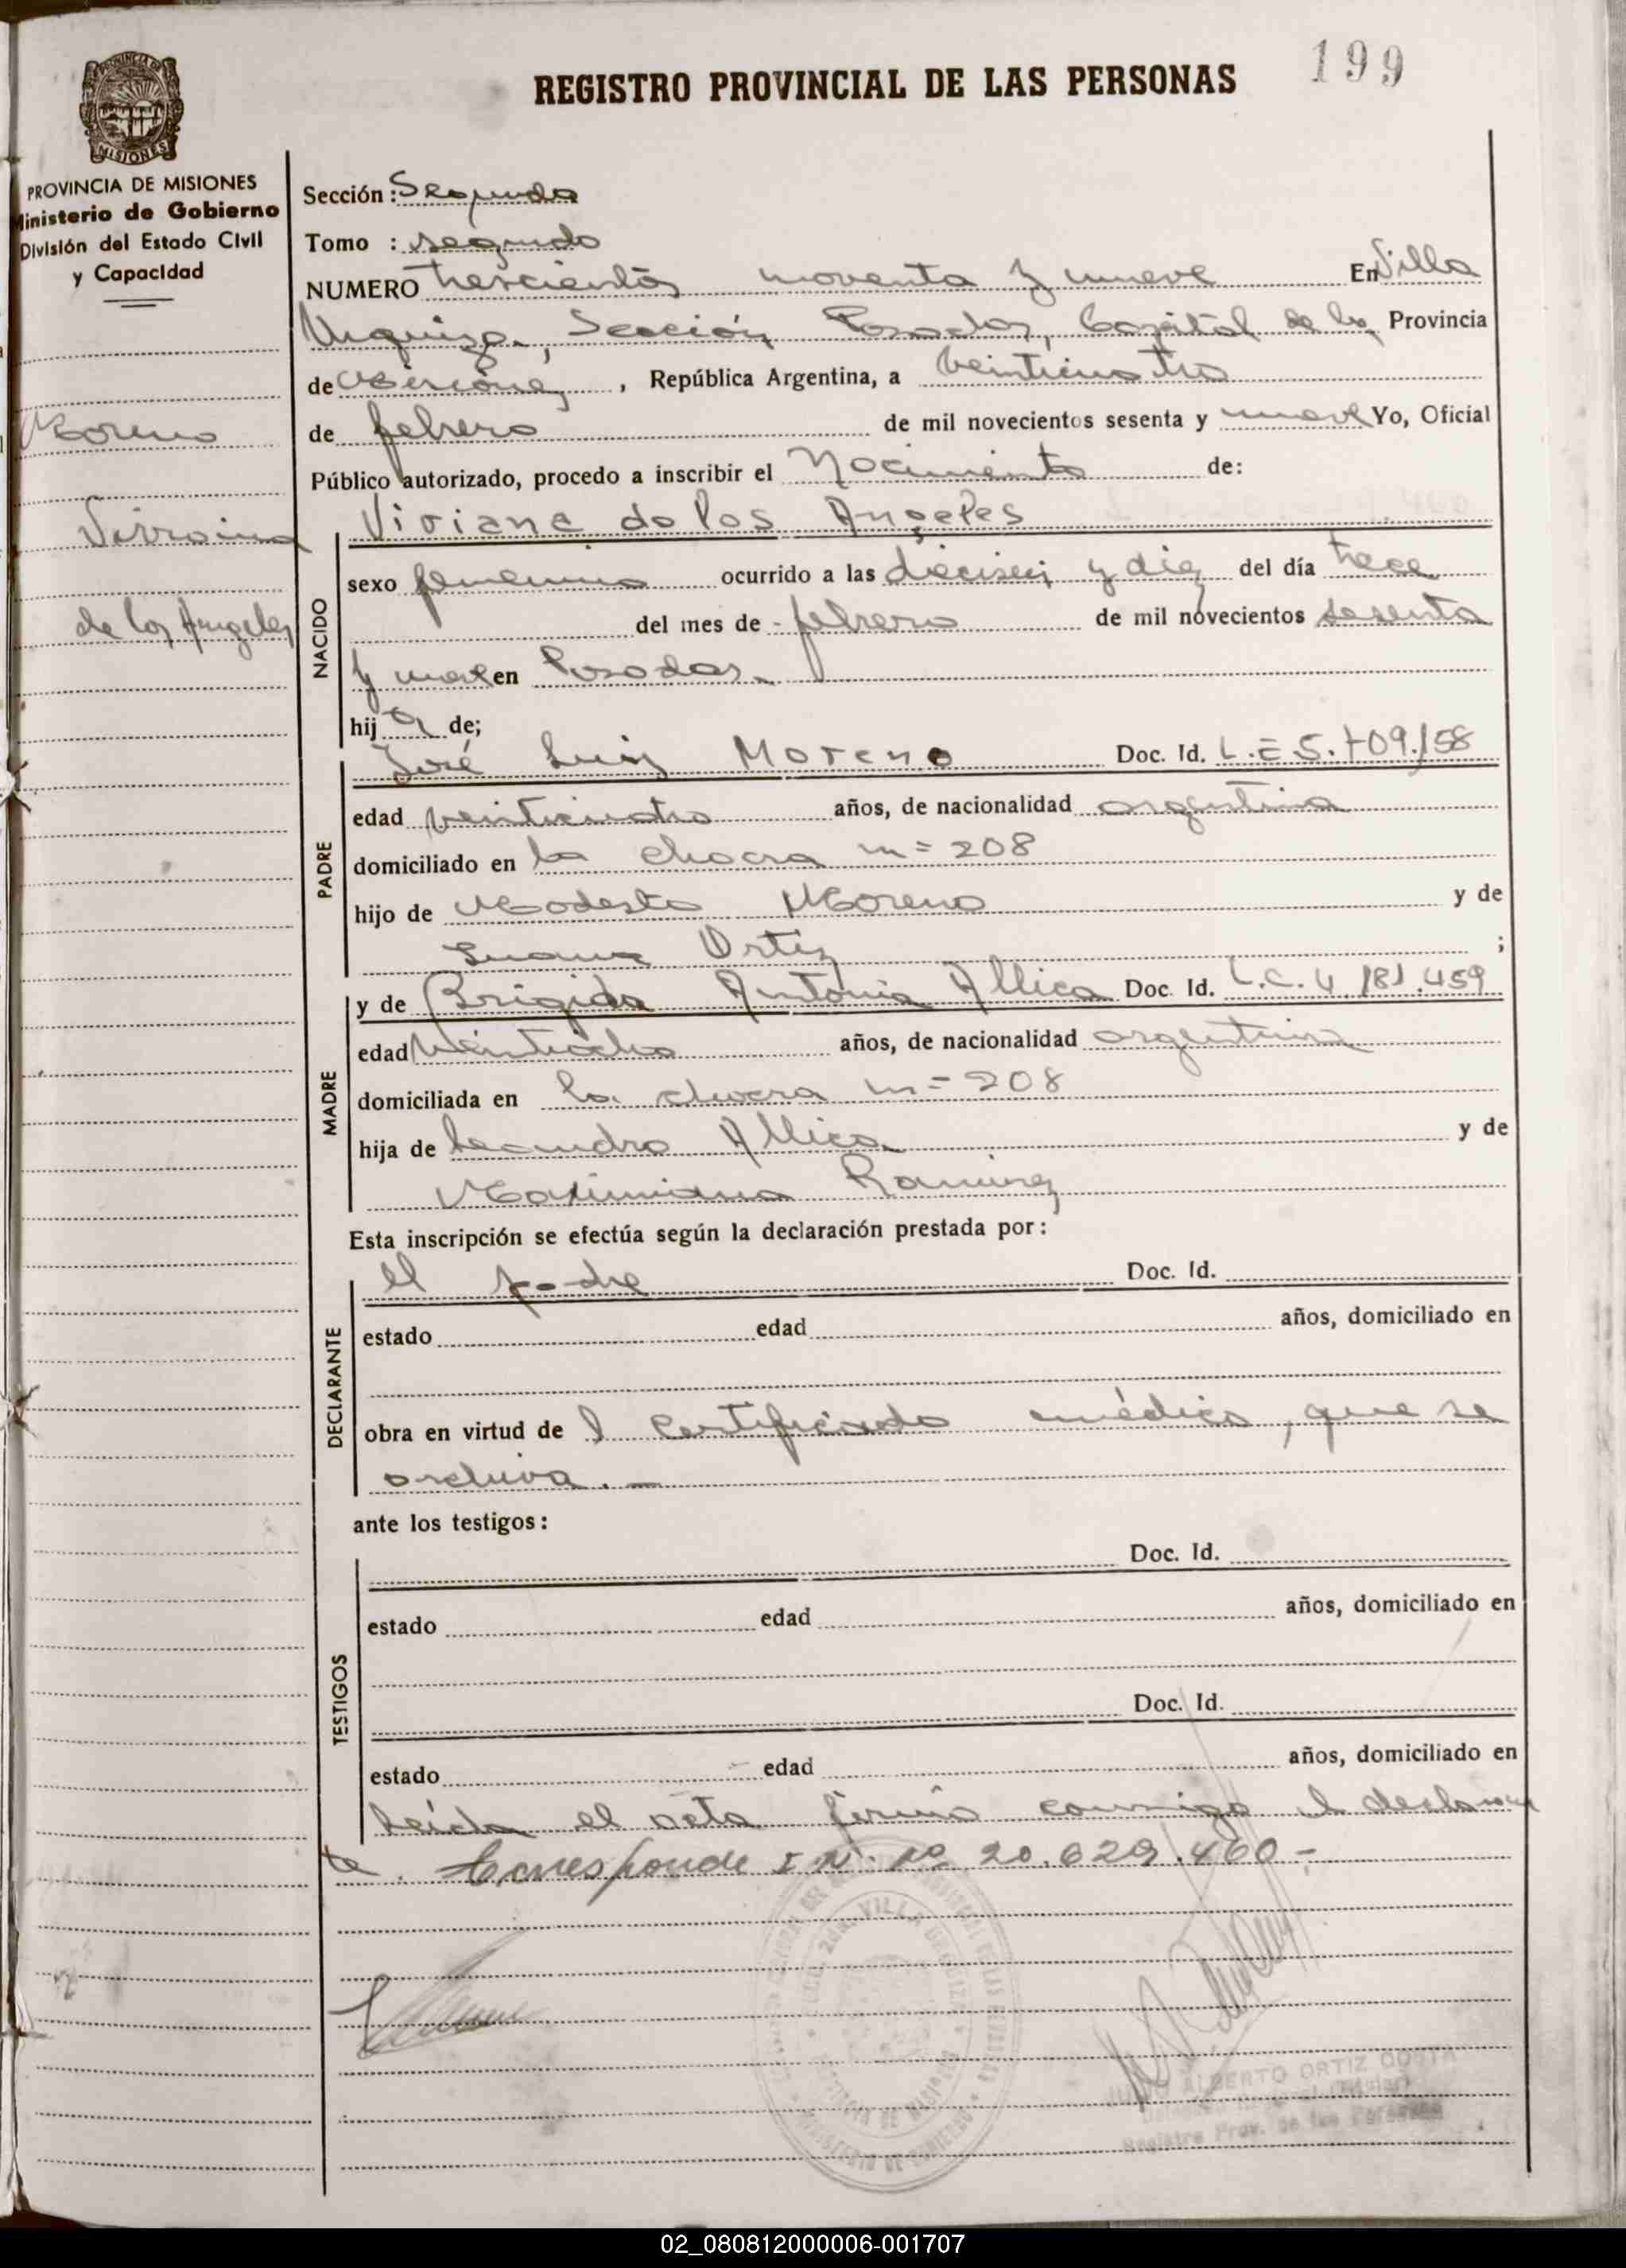 199
REGISTRO PROVINCIAL DE LAS PERSONAS
PROVINCIA DE MISIONES
MISIONES
PROVINCIA DE MISIONES
Ministerio de Gobierno
División del Estado Civil
y Capacidad
Moreno
Viviana
de los Angeles
Sección: Segunda
Tomo : segundo
NUMERO trescientos noventa y nueve En Villa
Urquiza, Sección Posadas, Capital de la Provincia
de Misiones, República Argentina, a veinticuatro
de febrero de mil novecientos sesenta y nueve Yo, Oficial
Público autorizado, procedo a inscribir el Nacimiento de:
Viviana de los Angeles
NACIDO
sexo femenino ocurrido a las dieciseis y diez del día trece
del mes de - febrero de mil novecientos sesenta
y nueve en Posadas.
hija de;
PADRE
José Luis Moreno Doc. Id. L.E 5.709.158
edad veinticuatro años, de nacionalidad argentina
domiciliado en la chacra n= 208
hijo de Modesto Moreno y de
Juana Ortiz ;
MADRE
y de Brigida Antonia Allica Doc. Id. L.C. 4.181.459
edad veintiocho años, de nacionalidad argentina
domiciliada en la chacra n= 208
hija de Leandro Allica y de
Maximiana Ramirez
Esta inscripción se efectúa según la declaración prestada por:
DECLARANTE
el padre Doc. Id.
estado edad años, domiciliado en
obra en virtud de l certificado médico, que se
archiva. —
ante los testigos:
TESTIGOS
Doc. Id.
estado edad años, domiciliado en
Doc. Id.
estado edad años, domiciliado en
Leida el acta firma conmigo el declaran
te. Corresponde I.N. no 20.629.460 -
ALBERTO ORTIZ COSTA
Registro Prov. de las Personas
02_080812000006-001707